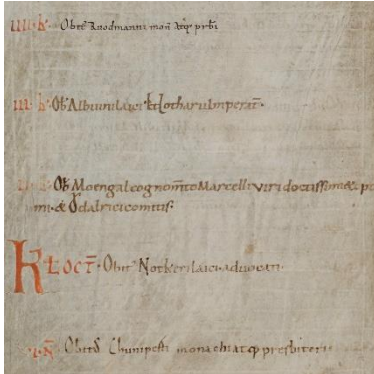 IIII. k̅. Obit̅ Ruodmanni moñ atq; prb̅i
III. k̅. Ob̅ Albuuini laici. Et Lotharii Imperat̅.
II. k̅. Ob̅ Moengal cognom̅to Marcelli viri doctissimi & op
imi. & Ǒdalrici comitis.
KL OCT̅. Obit̅ Notkeri laici. aduocati.
VI. N̅. Obitꝰ Chuniperti monachi atq; presbiteri